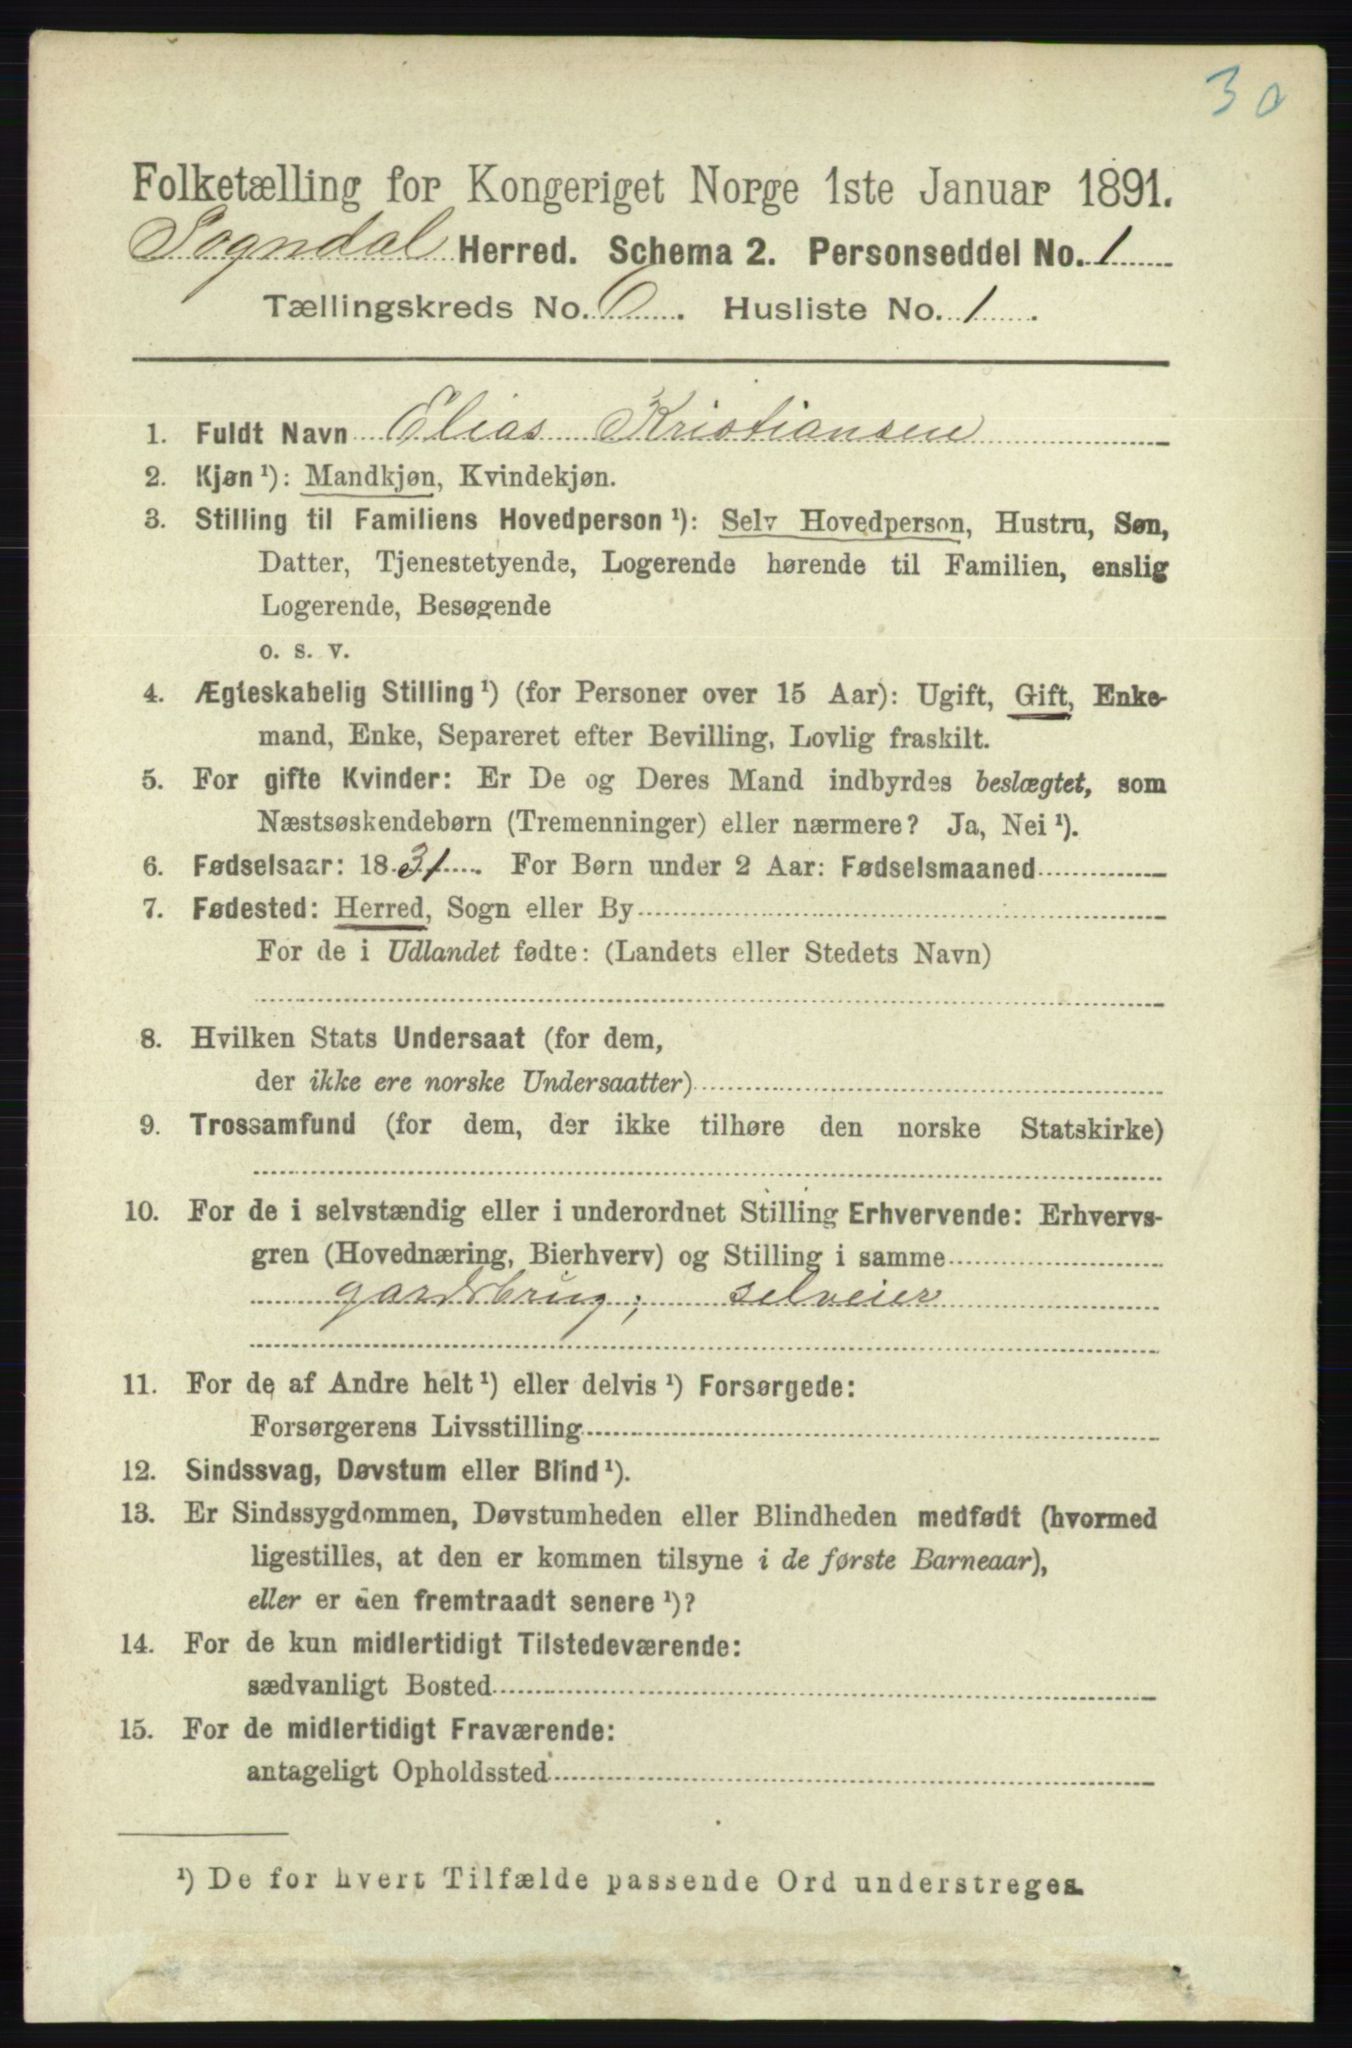 30
Folketælling for Kongeriget Norge 1ste Januar 1891.
Sogndal Herred. Schema 2. Personseddel No. 1
Tællingskreds No. 6. Husliste No. 1.
1. Fuldt Navn Elias Kristiansen
2. Kjøn¹): Mandkjøn, Kvindekjøn.
3. Stilling til Familiens Hovedperson¹): Selv Hovedperson, Hustru, Søn,
Datter, Tjenestetyende, Logerende hørende til Familien, enslig
Logerende, Besøgende
o. s. v.
4. Ægteskabelig Stilling¹) (for Personer over 15 Aar): Ugift, Gift, Enke-
mand, Enke, Separeret efter Bevilling, Lovlig fraskilt.
5. For gifte Kvinder: Er De og Deres Mand indbyrdes beslægtet, som
Næstsøskendebørn (Tremenninger) eller nærmere? Ja, Nei¹).
6. Fødselsaar: 1831. For Børn under 2 Aar: Fødselsmaaned
7. Fødested: Herred, Sogn eller By
For de i Udlandet fødte: (Landets eller Stedets Navn)
8. Hvilken Stats Undersaat (for dem,
der ikke ere norske Undersaatter)
9. Trossamfund (for dem, der ikke tilhøre den norske Statskirke)
10. For de i selvstændig eller i underordnet Stilling Erhvervende: Erhvervs-
gren (Hovednæring, Bierhverv) og Stilling i samme
gardsbrug; selveier
11. For de af Andre helt¹) eller delvis¹) Forsørgede:
Forsørgerens Livsstilling
12. Sindssvag, Døvstum eller Blind¹).
13. Er Sindssygdommen, Døvstumheden eller Blindheden medfødt (hvormed
ligestilles, at den er kommen tilsyne i de første Barneaar),
eller er den fremtraadt senere¹)?
14. For de kun midlertidigt Tilstedeværende:
sædvanligt Bosted
15. For de midlertidigt Fraværende:
antageligt Opholdssted
¹) De for hvert Tilfælde passende Ord understreges.